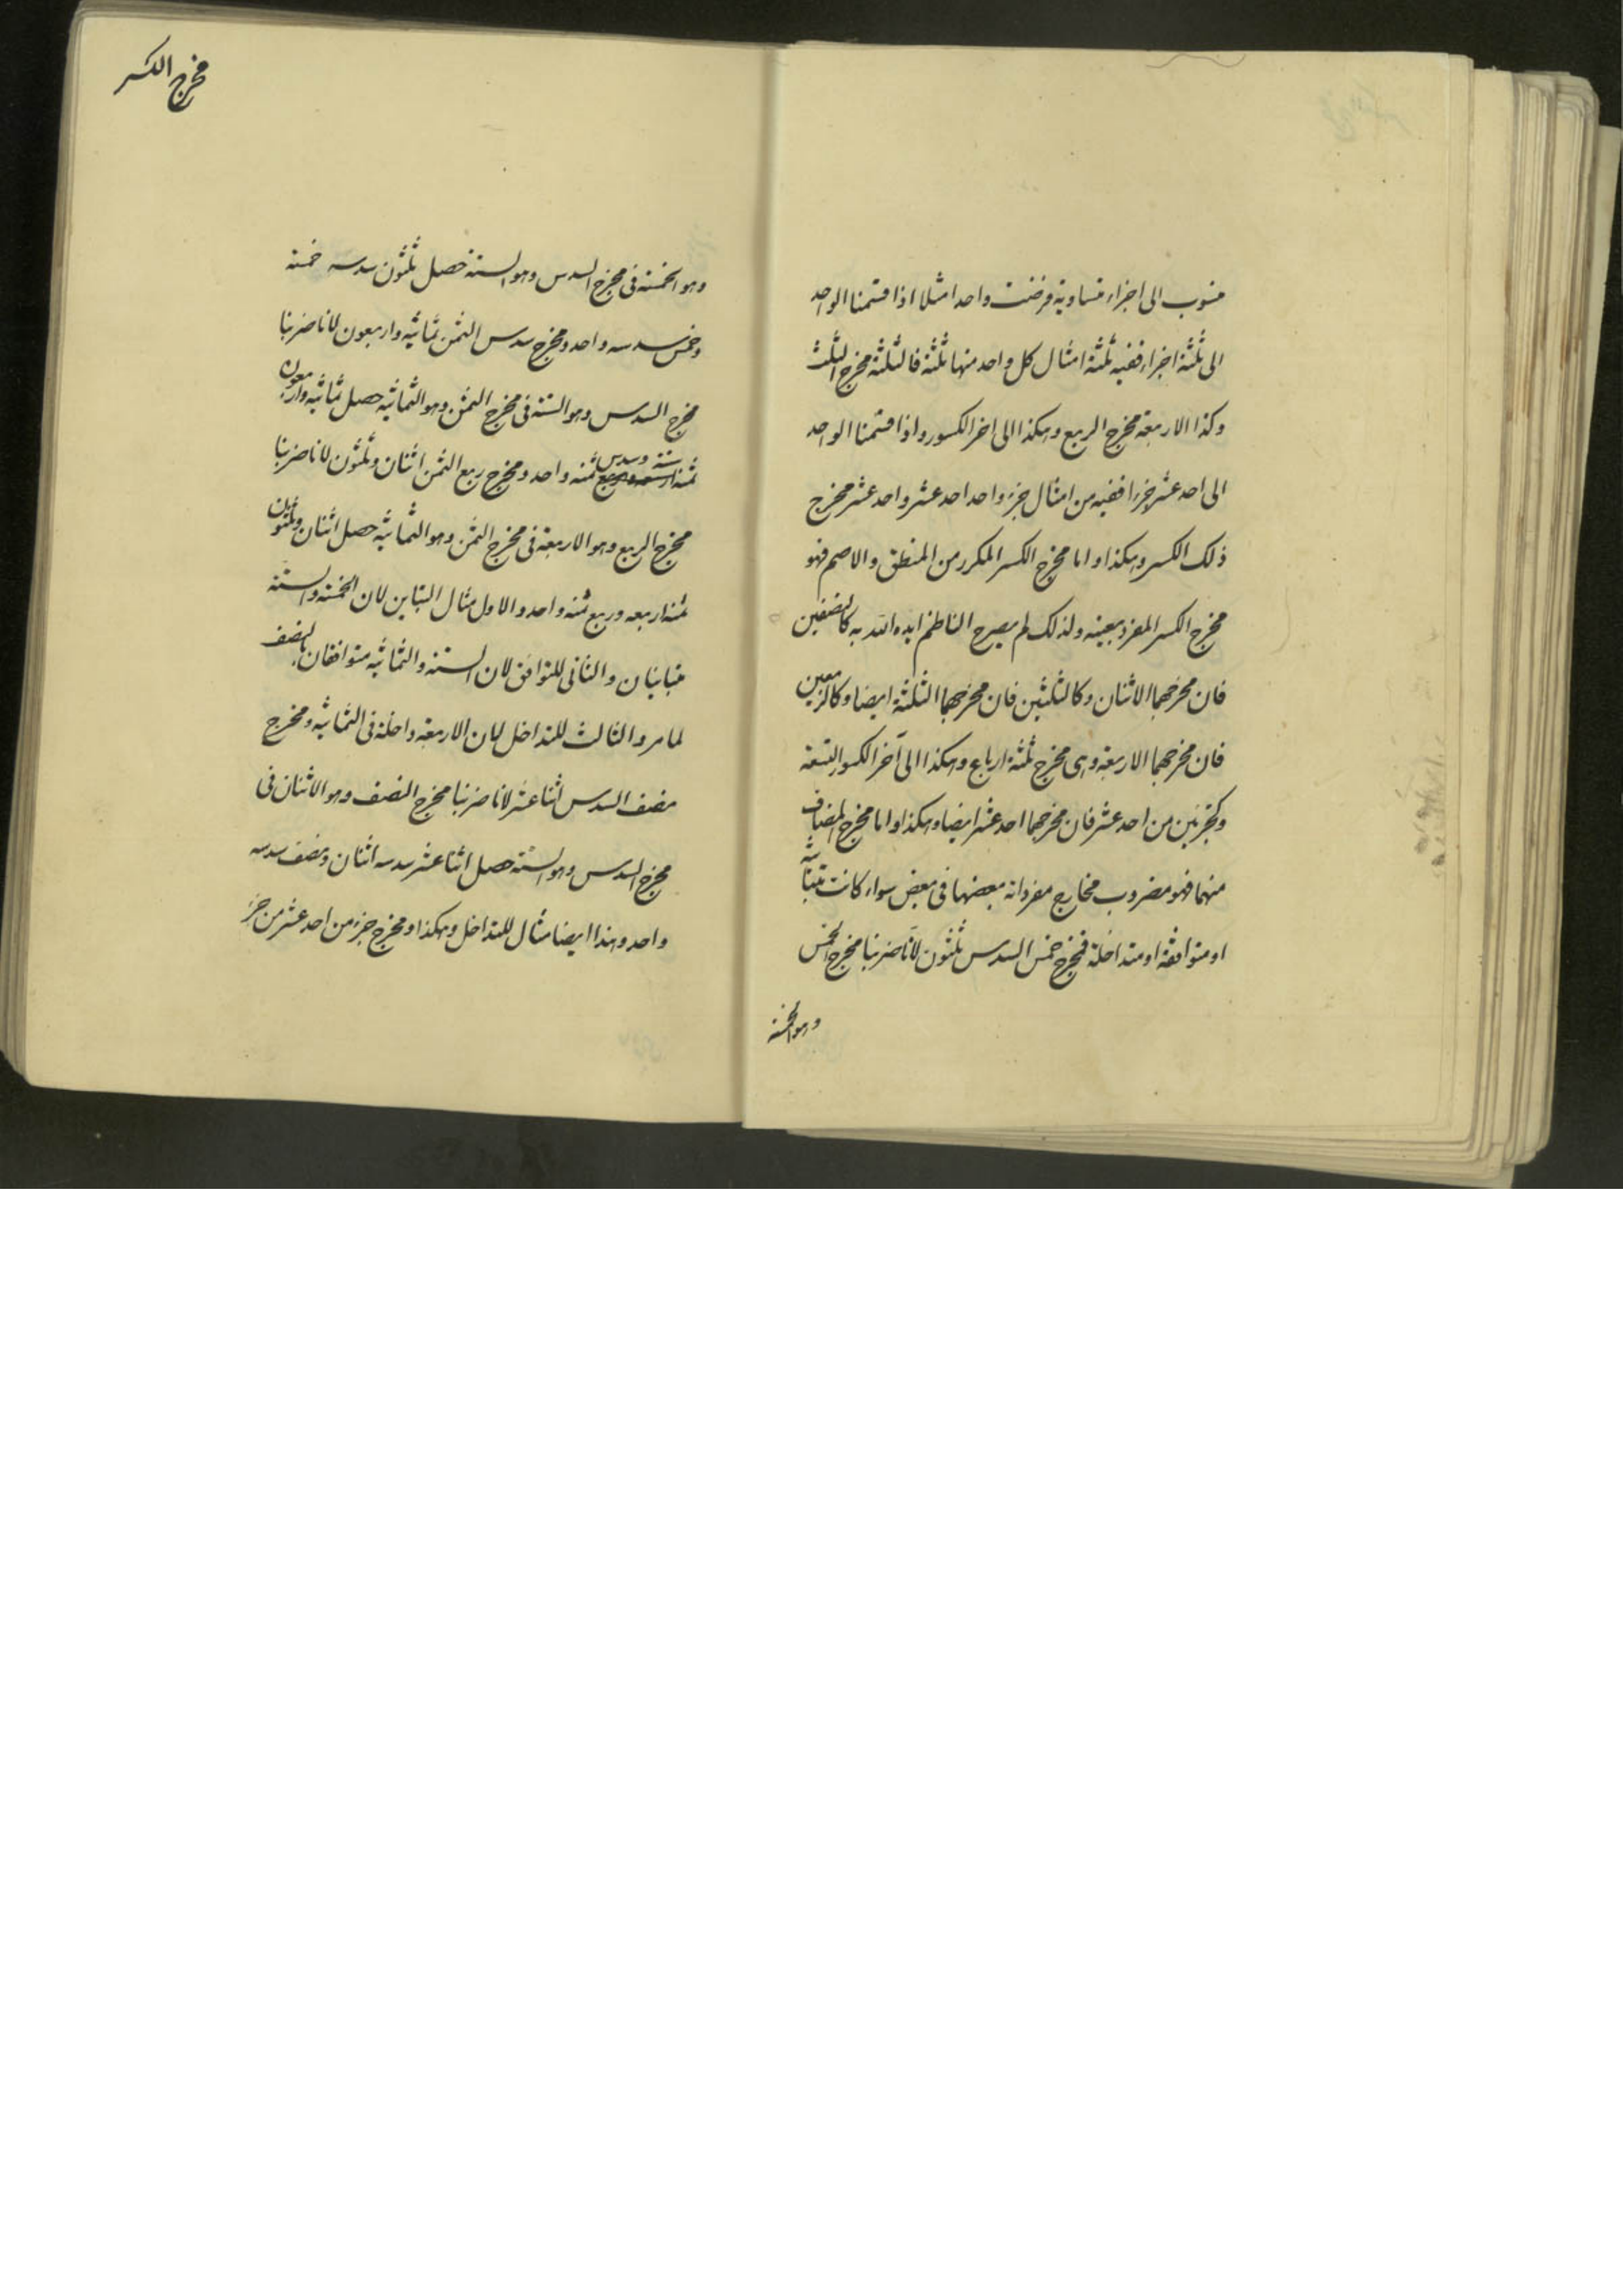 منسوب الى اجزاء متساوية فرضت واحدا مثلا اذا قسمنا الواحد
الى ثلثة اجزاء ففيه ثلثة امثال كل واحد منها ثلثه فالثلثة مخرج الثلث
وكذا الاربعة مخرج الربع وهكذا الى اخر الكسور واذا قسمنا الواحد
الى احد عشر جزءا ففيه من امثال جزء واحد احد عشر واحد عشر مخرج
ذلك الكسر وهكذا واما مخرج الكسر المكرر من المنطق والاصم فهو
مخرج الكسر المفرد بعينه ولذلك لم يصرح الناظم ايده الله به كالنصفين
فان مخرجهما الاثنان وكالثلثين فان مخرجهما الثلثة ايضا وكالربعين
فان مخرجهما الاربعة وهى مخرج ثلثة ارباع وهكذا الى آخر الكسور التسعة
وكجزئين من احد عشر فان مخرجهما احد عشر ايضا وهكذا واما مخرج المضاف
منهما فهو مضروب مخارج مفرداته بعضها فى بعض سواء كانت متباينة
او متوافقة او متداخلة فمخرج خمس السدس ثلثون لانا ضربنا مخرج الخمس
وهو الخمسة
مخرج الكسر
وهو الخمسة فى مخرج السدس وهو الستة حصل ثلثون سدسه خمسة
وخمس سدسه واحد ومخرج سدس الثمن ثمانيه واربعون لانا ضربنا
مخرج السدس وهو الستة فى مخرج الثمن وهو الثمانيه حصل ثمانيه واربعون
ثمنه ستة وسدس ثمنه واحد ومخرج ربع الثمن اثنان وثلثون لانا ضربنا
مخرج الربع وهو الاربعة فى مخرج الثمن وهو الثمانيه حصل اثنان وثلثون
ثمنه اربعه وربع ثمنه واحد والاول مثال التباين لان الخمسة والستة
متباينان والثانى للتوافق لان الستة والثمانيه متوافقان بالنصف
لما مر والثالث للتداخل لان الاربعة داخلة فى الثمانيه ومخرج
نصف السدس اثنا عشر لانا ضربنا مخرج النصف وهو الاثنان فى
مخرج السدس وهو الستة حصل اثنا عشر سدسه اثنان ونصف سدسه
واحد وهذا ايضا مثال للتداخل وهكذا ومخرج جزء من احد عشر من جزء